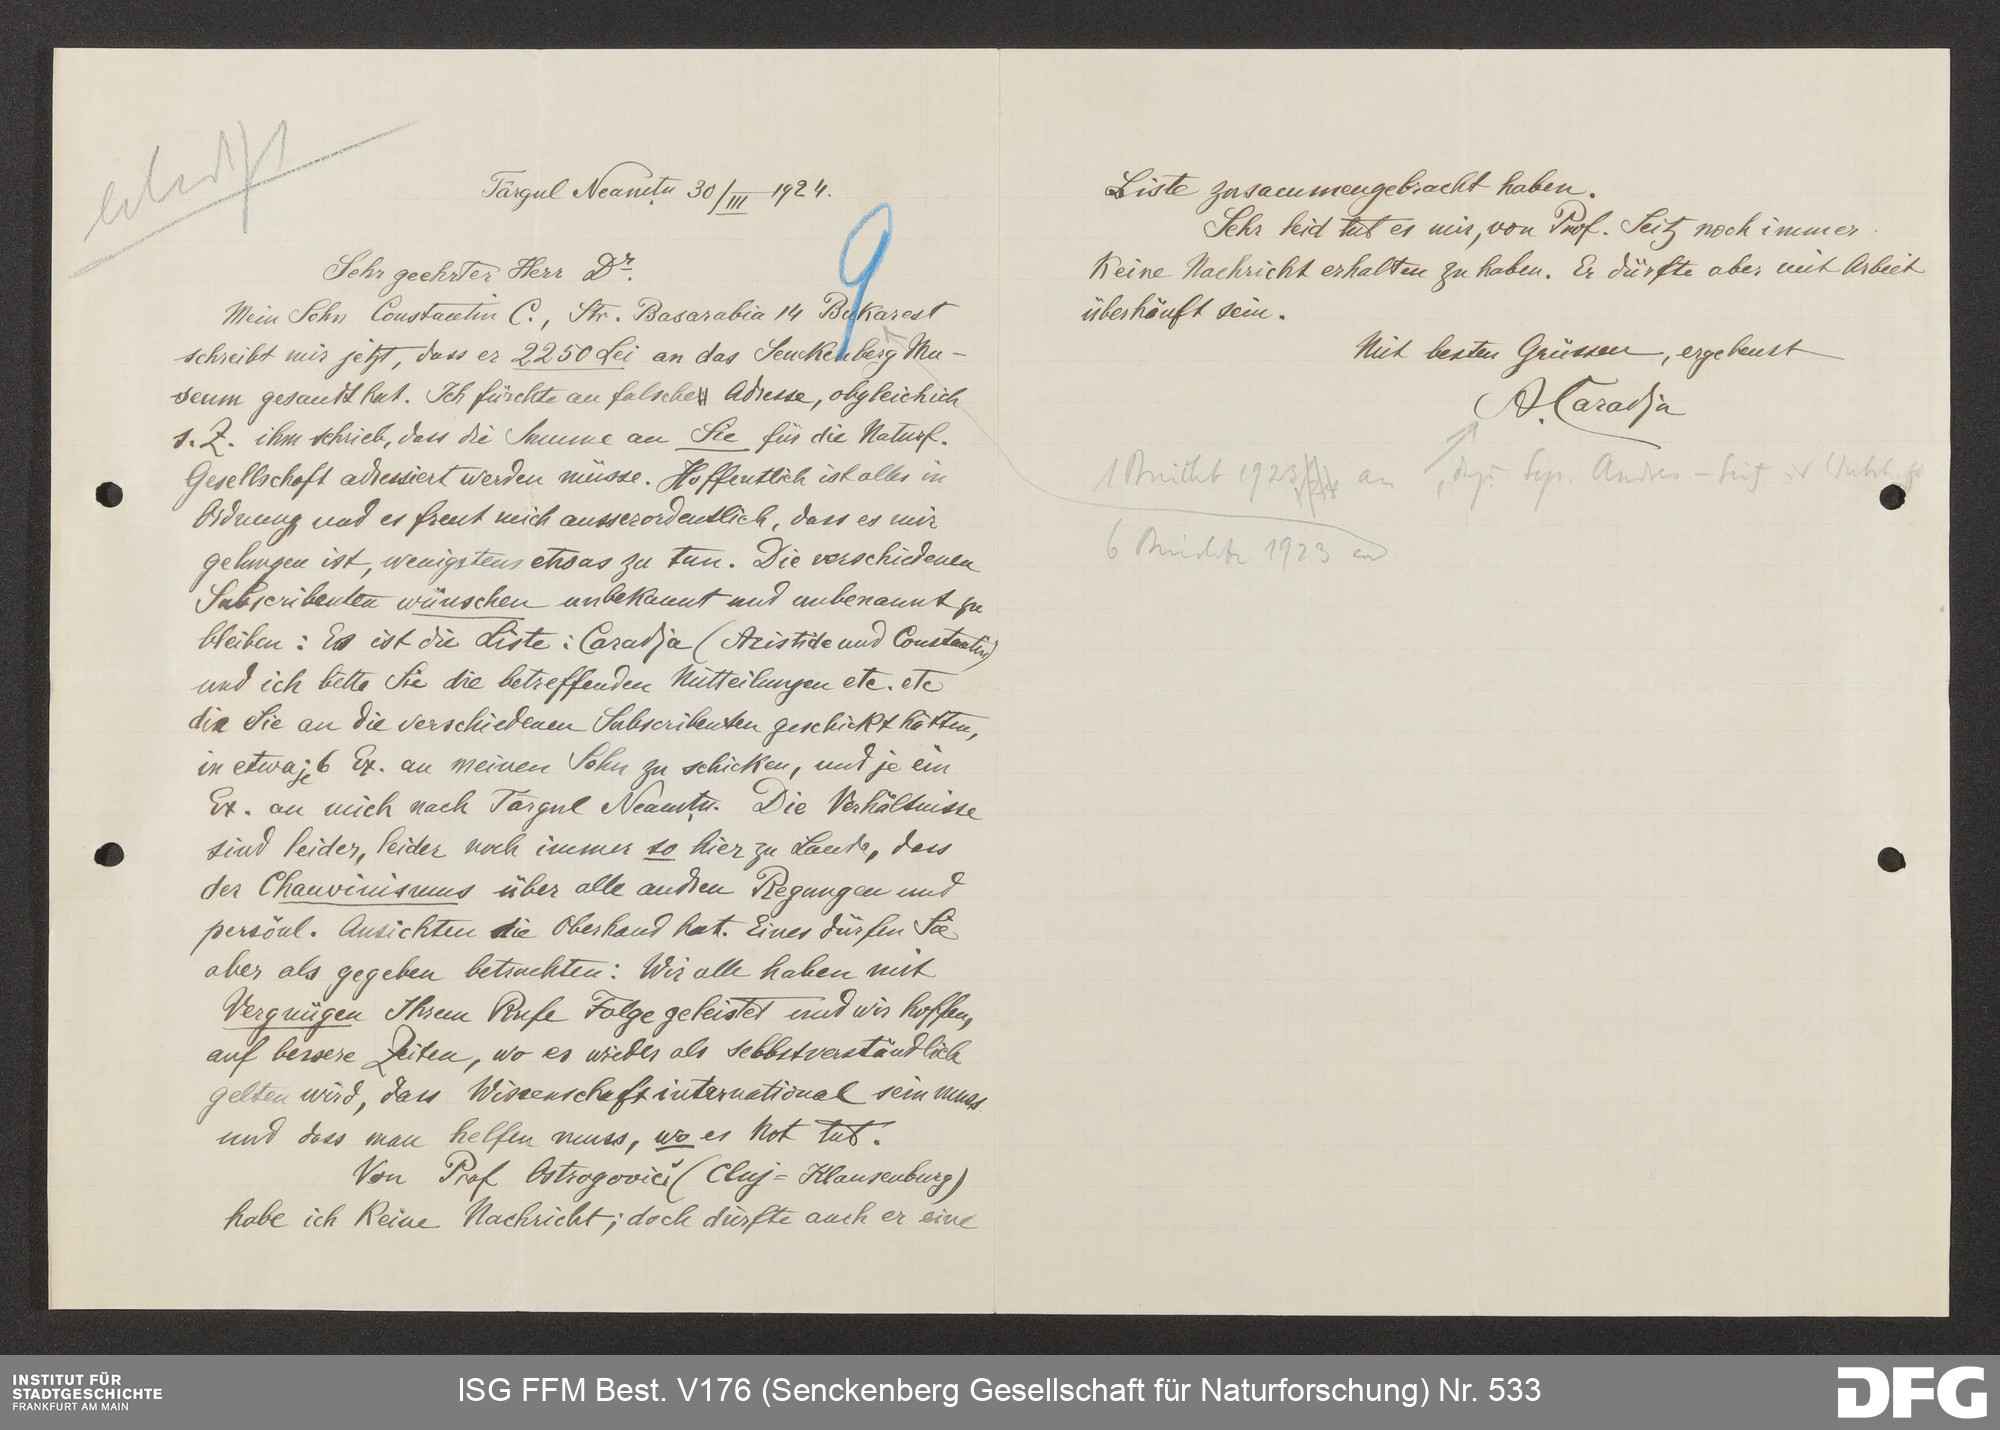 erledigt
Târgul Neamțu 30/III 1924.
9
Sehr geehrter Herr Dr.
Mein Sohn Constantin C., Str. Basarabia 14 Bukarest
schreibt mir jetzt, dass er 2250 Lei an das Senckenberg Mu-
seum gesandt hat. Ich fürchte an falsche Adresse, obgleich ich
s. Z. ihm schrieb, dass die Summe an Sie für die Naturf.
Gesellschaft adressiert werden müsse. Hoffentlich ist alles in
Ordnung und es freut mich ausserordentlich, dass es mir
gelungen ist, wenigstens etwas zu tun. Die verschiedenen
Subscribenten wünschen unbekannt und unbenannt zu
bleiben: Es ist die Liste: Caradja (Aristide und Constantin)
und ich bitte Sie die betreffenden Mitteilungen etc. etc
die Sie an die verschiedenen Subscribenten geschickt hätten,
in etwa je 6 Ex. an meinen Sohn zu schicken, und je ein
Ex. an mich nach Târgul Neamțu. Die Verhältnisse
sind leider, leider noch immer so hier zu Lande, dass
der Chauvinismus über alle andren Regungen und
persönl. Ansichten die Oberhand hat. Eines dürfen Sie
aber als gegeben betrachten: Wir alle haben mit
Vergnügen Ihrem Rufe Folge geleistet und wir hoffen,
auf bessere Zeiten, wo es wieder als selbstverständlich
gelten wird, dass Wissenschaft international sein muss
und dass man helfen muss, wo es Not tut.
Von Prof Ostrogovici (Cluj = Klausenburg)
habe ich Keine Nachricht; doch dürfte auch er eine
Liste zusammengebracht haben.
Sehr leid tut es mir, von Prof. Seitz noch immer
Keine Nachricht erhalten zu haben. Er dürfte aber mit Arbeit
überhäuft sein.
Mit besten Grüssen, ergebenst
A. Caradja
1 Bericht 1923 an Sep. Andres - Seitz
6 Berichte 1923 an
INSTITUT FÜR
STADTGESCHICHTE
FRANKFURT AM MAIN
ISG FFM Best. V176 (Senckenberg Gesellschaft für Naturforschung) Nr. 533
DFG